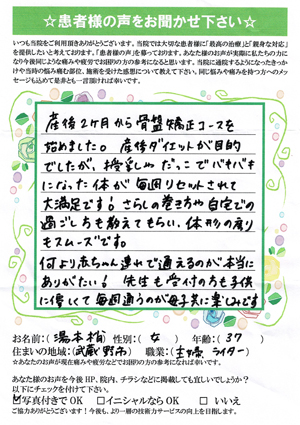 ☆患者様の声をお聞かせ下さい☆
いつも当院をご利用頂きありがとうございます。当院では大切な患者様に「最高の治療」と「親身な対応」
を提供したいと考えております。「患者様の声」を募っております。あなた様のお声が実際に私たちの力に
なり今後同じような痛みや疲労でお困りの方の参考になると思います。当院に通院するようになったきっか
けや当時の悩み痛む部位、施術を受けた感想について教えて下さい。同じ悩みや痛みを持つ方へのメッ
セージも込めて是非とも一言頂ければ幸いです。
産後2ヶ月から骨盤矯正コースを
始めました。産後ダイエットが目的
でしたが、授乳や だっこで バキバキ
になった体が毎回リセットされて
大満足です! さらしの巻き方や自宅での
過ごし方も教えてもらい、体形の戻り
もスムーズです。
何より赤ちゃん連れで通えるのが本当に
ありがたい! 先生も受付の方も子供
に優しくて毎週通うのが母子共に楽しみです
お名前:( 湯本 ) 性別:( 女 ) 年齢:( 37 )
住まいの地域:(武蔵野市) 職業:(主婦 ライター)
☆あなたのお声が現在痛みや疲労などでお困りの方の参考になれば幸いです。
あなた様のお声を今後HP、院内、チラシなどに掲載しても宜しいでしょうか?
以下にチェックを付けて下さい。
写真付きでOK □イニシャルならOK □いいえ
ご協力ありがとうございます!今後も、より一層の技術力サービスの向上を目指します。